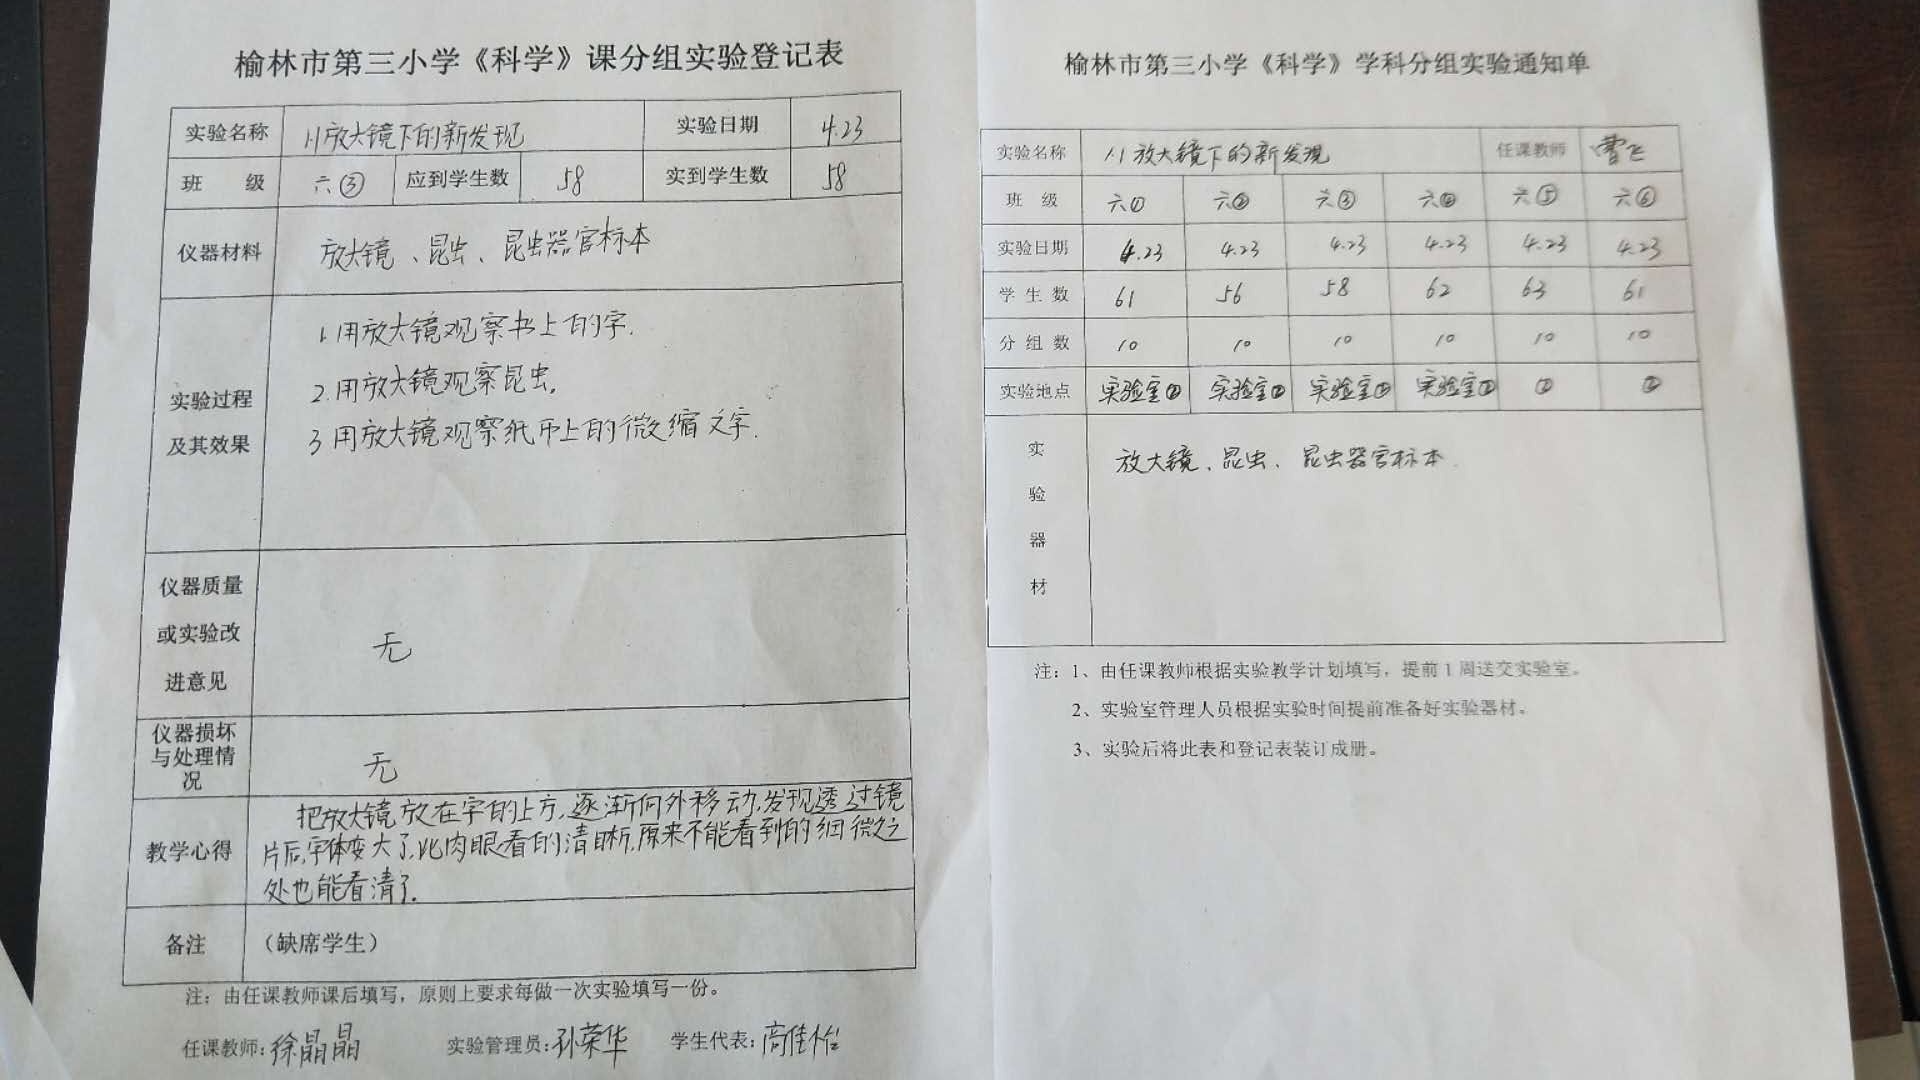 榆林市第三小学《科学》课分组实验登记表
实验名称 1.1放大镜下的新发现 实验日期 4.23
班 级 六③ 应到学生数 58 实到学生数 58
仪器材料 放大镜、昆虫、昆虫器官标本
实验过程
及其效果
1.用放大镜观察书上的字.
2.用放大镜观察昆虫.
3.用放大镜观察纸币上的微缩文字.
仪器质量
或实验改
进意见
无
仪器损坏
与处理情
况
无
教学心得
把放大镜放在字的上方,逐渐向外移动,发现透过镜
片后,字体变大了,比肉眼看的清晰,原来不能看到的细微之
处也能看清了.
备注 （缺席学生）
注：由任课教师课后填写，原则上要求每做一次实验填写一份。
任课教师:徐晶晶 实验管理员:孙荣华 学生代表:高佳怡
榆林市第三小学《科学》学科分组实验通知单
实验名称 1.1放大镜下的新发现 任课教师 曹飞
班 级 六① 六② 六③ 六④ 六⑤ 六⑥
实验日期 4.23 4.23 4.23 4.23 4.23 4.23
学生数 61 56 58 62 63 61
分组数 10 10 10 10 10 10
实验地点 实验室② 实验室② 实验室② 实验室② ② ②
实
验
器
材
放大镜、昆虫、昆虫器官标本.
注：1、由任课教师根据实验教学计划填写，提前1周送交实验室。
2、实验室管理人员根据实验时间提前准备好实验器材。
3、实验后将此表和登记表装订成册。